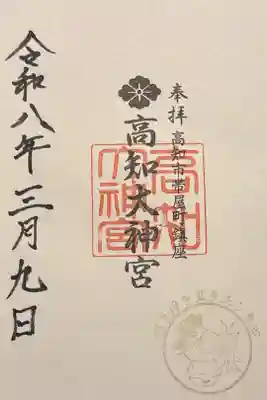 奉拝 高知市帯屋町鎮座
高知大神宮
令和八年三月九日